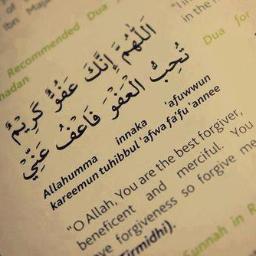 of Ibn Maj
"in the
Recommended Dua
Dua for
اَللّٰهُمَّ إِنَّكَ عَفُوٌّ كَرِيْمٌ
تُحِبُّ الْعَفْوَ فَاعْفُ عَنِّيْ
Allahumma innaka 'afuwwun
kareemun tuhibbul 'afwa fa'fu 'annee
"O Allah, You are the best forgiver,
beneficent and merciful. You
forgiveness so forgive me
irmidhi).
unnah in R